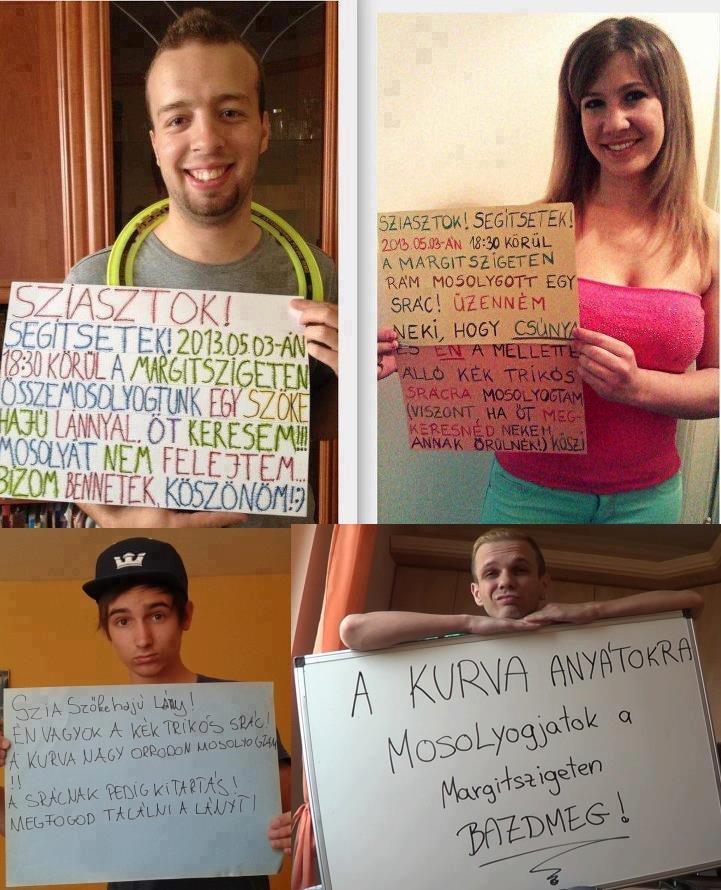 SZIASZTOK!
SEGÍTSETEK! 2013.05.03-ÁN
18:30 KÖRÜL A MARGITSZIGETEN
ÖSSZEMOSOLYOGTUNK EGY SZŐKE
HAJÚ LÁNNYAL. ŐT KERESEM!!!
MOSOLYÁT NEM FELEJTEM...
BÍZOM BENNETEK, KÖSZÖNÖM!:)
SZIASZTOK! SEGÍTSETEK!
2013.05.03-ÁN 18:30 KÖRÜL
A MARGITSZIGETEN
RÁM MOSOLYGOTT EGY
SRÁC! ÜZENNÉM
NEKI, HOGY CSÚNYA
ÉS ÉN A MELLETTE
ÁLLÓ KÉK TRIKÓS
SRÁCRA MOSOLYOGTAM
(VISZONT, HA ŐT MEG-
KERESNÉD NEKEM,
ANNAK ÖRÜLNÉK!) KÖSZI
SZIA SZőkehajú Lány!
ÉN VAGYOK A KÉK TRIKÓS SRÁC!
A KURVA NAGY ORRODON MOSOLYOGTAM
!!
A SRÁCNAK PEDIG KITARTÁS!
MEGFOGOD TALÁLNI A LÁNYT!
A KURVA ANYÁTOKRA
MOSOLYogjatok a
Margitszigeten
BAZDMEG!